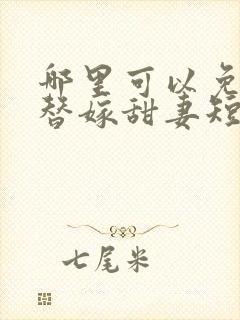 哪里可以免
替嫁甜妻短
七尾米